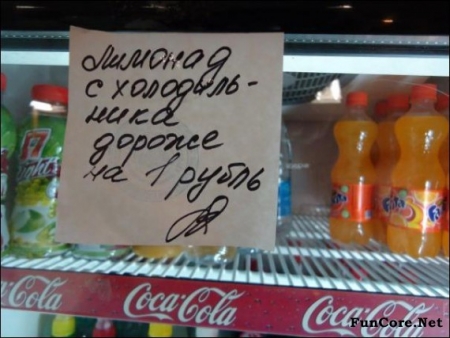 Лимонад
с холодиль-
ника
дороже
на 1 рубль
Fanta
Fanta
Coca-Cola
Coca-Cola
Coca-Cola
FunCore.Net